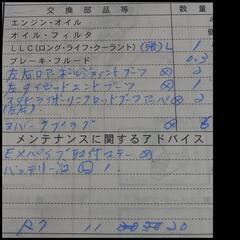 交換部品等 数量
エンジン・オイル
オイル・フィルタ
LLC(ロング・ライフ・クーラント) (強) L 1
ブレーキ・フルード 0.3
左右ロアボールジョイントブーツ ⊗ 2
左タイロッドエンドブーツ ⊗ 1
スタビライザーリンクロッドブーツアッパ ⊗ 2
(左右)
スパークプラグ ⊗ 6
メンテナンスに関するアドバイス
EXパイプ取付ステー ⊗
バッテリー液 1
R7 11 20